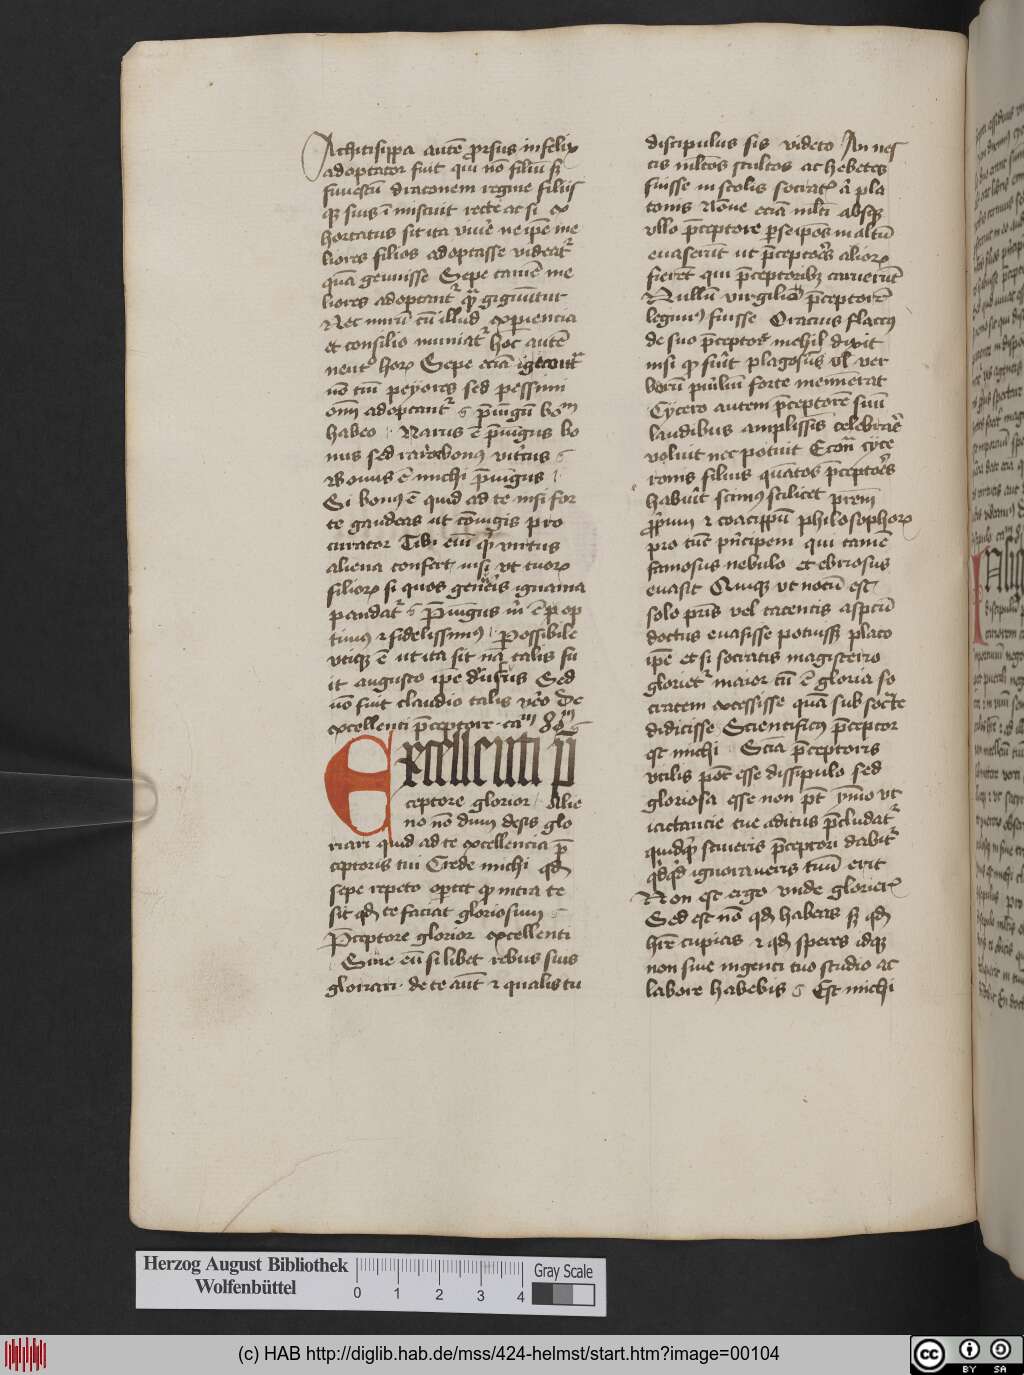 Achitisippa autē prorsus infelix
adoptator fuit qui nō filiū sʒ
funestū draconem regine filiis
qʒ suis īmiscuit recte ac si ex
hortatus sit ita viuē ne ipē me
liores filios adoptasse videatr
quā genuisse Sepe tamē me
liores adoptantr qm̄ gignūtur
Nec mirū cū illud expiencia
et consilio muniatr hoc autē
neutr horꝝ Sepe eciā igerantr
nō tm̄ peyores sed pessimi
om̄ adoptantr pͥuignū bom
habeo Rarus ē pͥuignus bo
nus sed rarobonus vitricus
Bonus ē michi pͥuignus
Si bonꝯ ē quid ad te nisi for
te gaudeas ut cōiugis pro
curator Tibi eni qͥ virtus
aliena confert nisi vt tuorꝝ
filiorꝝ si quos genueris ignauia
pandatr Pͥuignus m̄ ē p op
timꝯ et fidelissimꝯ Possibile
vtiqʒ ē ut ita sit nā talis fu
it augusto ipe drusus Sed
nō fuit claudio talis nēo De
excellenti p̄ceptore cam 80m
Excellenti p̄
ceptore glorior Alie
no nō dum desis glo
riari quid ad te excellencia p̄
ceptoris tui Crede michi qd
sepe repeto oportet qͥ intra te
sit qd te faciat gloriosum
P̄ceptore glorior excellenti
Sine eū si libet rebus suis
gloriari de te aūt et qualis tu
discipulus sis videto An nes
cis mltōs stultos ac hebetes
fuisse in scolis socratꝭ ā pla
tonis Nōne eciā mlti absqʒ
vllo p̄ceptore p seipōs in altū
euaserūt ut p̄ceptores aliorꝝ
fierēt qui p̄ceptoribʒ caruerūt
Nullū virgilio p̄ceptorē
legimꝯ fuisse Oracius flaccꝯ
de suo p̄ceptore nichil dixit
nisi qͥ fuit plagosus vl ver
berū puilium forte meminerat
Cycero autem p̄ceptorē suū
laudibus amplissis celebrare
voluit nec potuit Econᵃ cyce
ronis filius quātos p̄ceptores
habuit scimꝯ scilicet prem
propium et coacippū philosophorꝝ
pro tūc p̄ncipem qui tamē
famosus nebulo et ebriosus
euasit Quisqʒ vt notū est
solo pris vel tacentis aspctū
doctus euasisse potuissʒ plato
ipē et si socratis magisterio
glorietr maior tn̄ ē gloria so
cratem excessisse quā sub socrate
didicisse Scientificꝯ p̄ceptor
est michi Scīa p̄ceptoris
vtilis pōt esse dissipulo sed
gloriosa esse non pōt ymmo vt
iactancie tue aditus p̄cludatr
quidqͥd sciueris p̄ceptori dabitr
qͥdqͥd ignoraueris tuū erit
Non est ergo vnde glorierꝭ
Sed est nō qd habeas sʒ qd
hr̄e cupias et qd speres idqʒ
non sine ingenti tuo studio ac
labore habebis Est michi
Herzog August Bibliothek
Wolfenbüttel
0 1 2 3 4
Gray Scale
(c) HAB http://diglib.hab.de/mss/424-helmst/start.htm?image=00104
cc BY SA